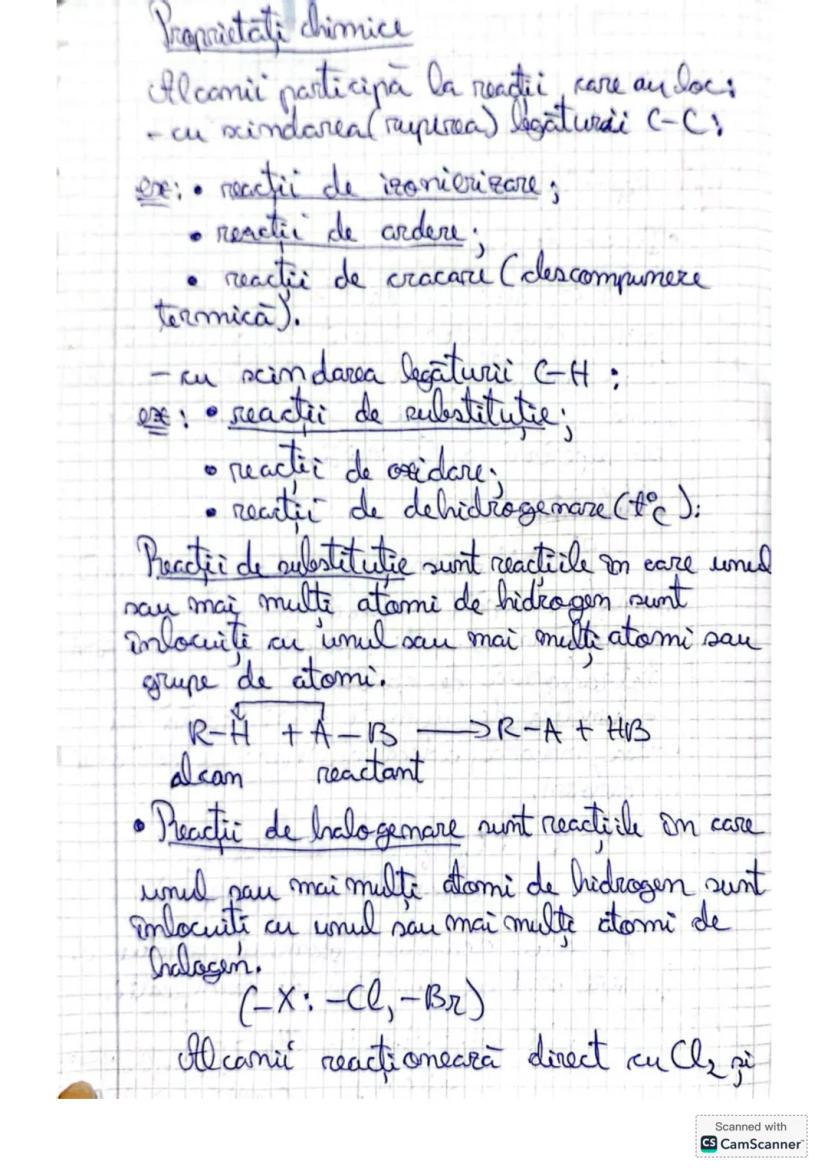 Proprietăți chimice
Alcanii participă la reacții care au loc:
- cu scindarea (ruperea) legăturii C-C:
ex: • reacții de izomerizare;
• reacții de ardere;
• reacții de cracare (descompunere
termică).
- cu scindarea legăturii C-H :
ex : • reacții de substituție;
• reacții de oxidare;
• reacții de dehidrogenare (t°C).
Reacții de substituție sunt reacțiile în care unul
sau mai mulți atomi de hidrogen sunt
înlocuiți cu unul sau mai mulți atomi sau
grupe de atomi.
R-H + A-B ⟶ R-A + HB
alcan reactant
• Reacții de halogenare sunt reacțiile în care
unul sau mai mulți atomi de hidrogen sunt
înlocuiți cu unul sau mai mulți atomi de
halogen.
(-X: -Cl, -Br)
Alcanii reacționează direct cu Cl₂ și
Scanned with
CS CamScanner